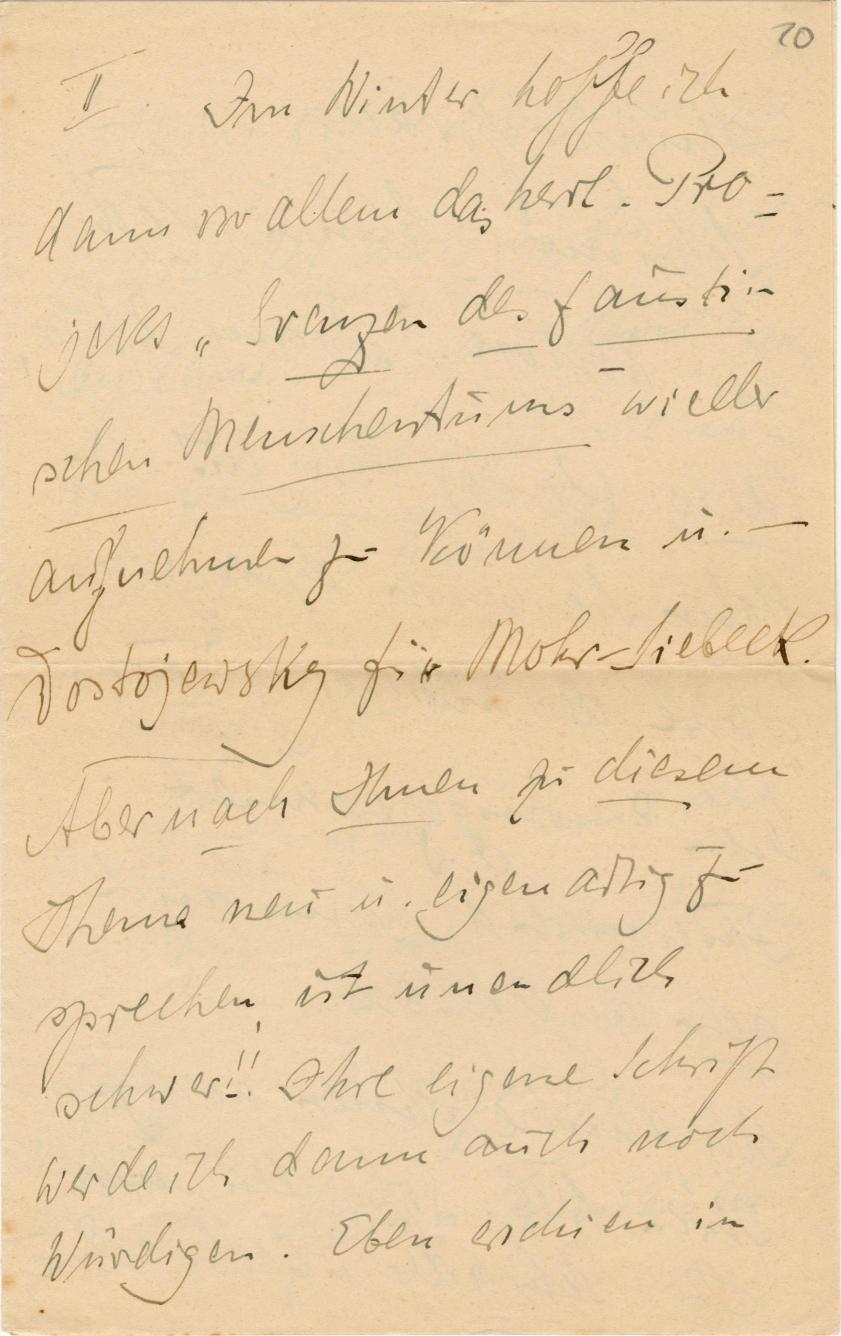 10
II. Im Winter hoffe ich
dann vor allem das herrl. Pro=
jekt „Grenzen des fausti-
schen Menschentums" wieder
aufnehmen zu können u. —
Dostojewsky für Mohr-Siebeck.
Aber nach Ihnen zu diesem
Thema neu u. eigenartig zu
sprechen, ist unendlich
schwer!! Ihre eigene Schrift
werde ich dann auch noch
würdigen. Eben erschien in